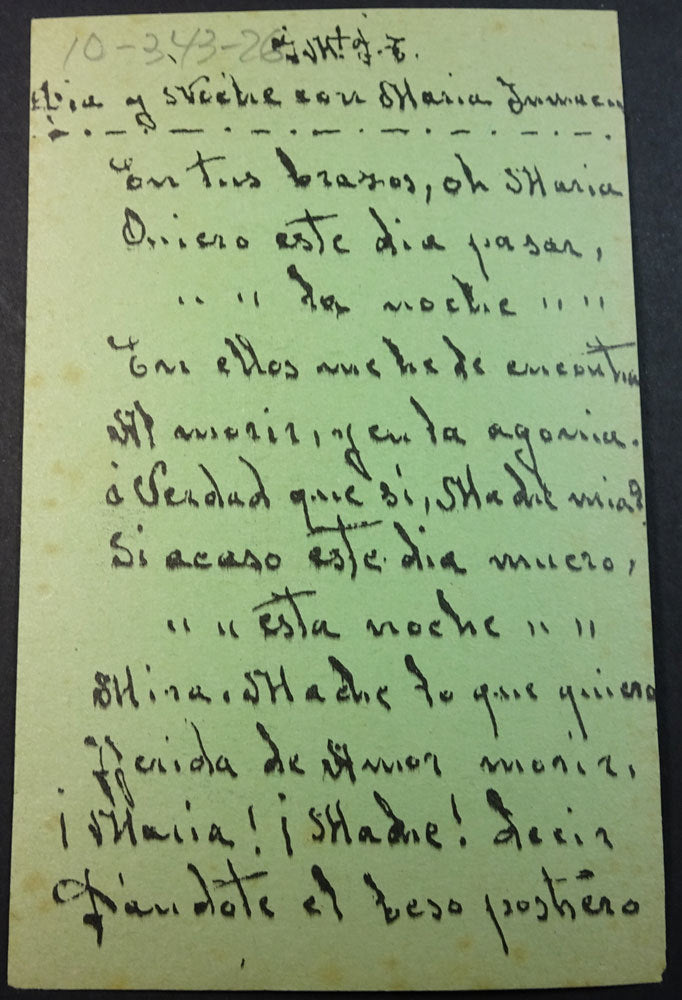 10-343-26
J. M. J. T.
Dia y Noche con Maria Inmacu
En tus brazos, oh Maria
Quiero este dia pasar,
" " la noche " "
En ellos me he de encontra
Al morir, y en la agonia.
¿Verdad que si, Madre mia?
Si acaso este dia muero,
" " esta noche " "
Mira, Madre lo que quiero
Herida de Amor morir,
¡Maria! ¡Madre! decir
Dándote el beso postrero